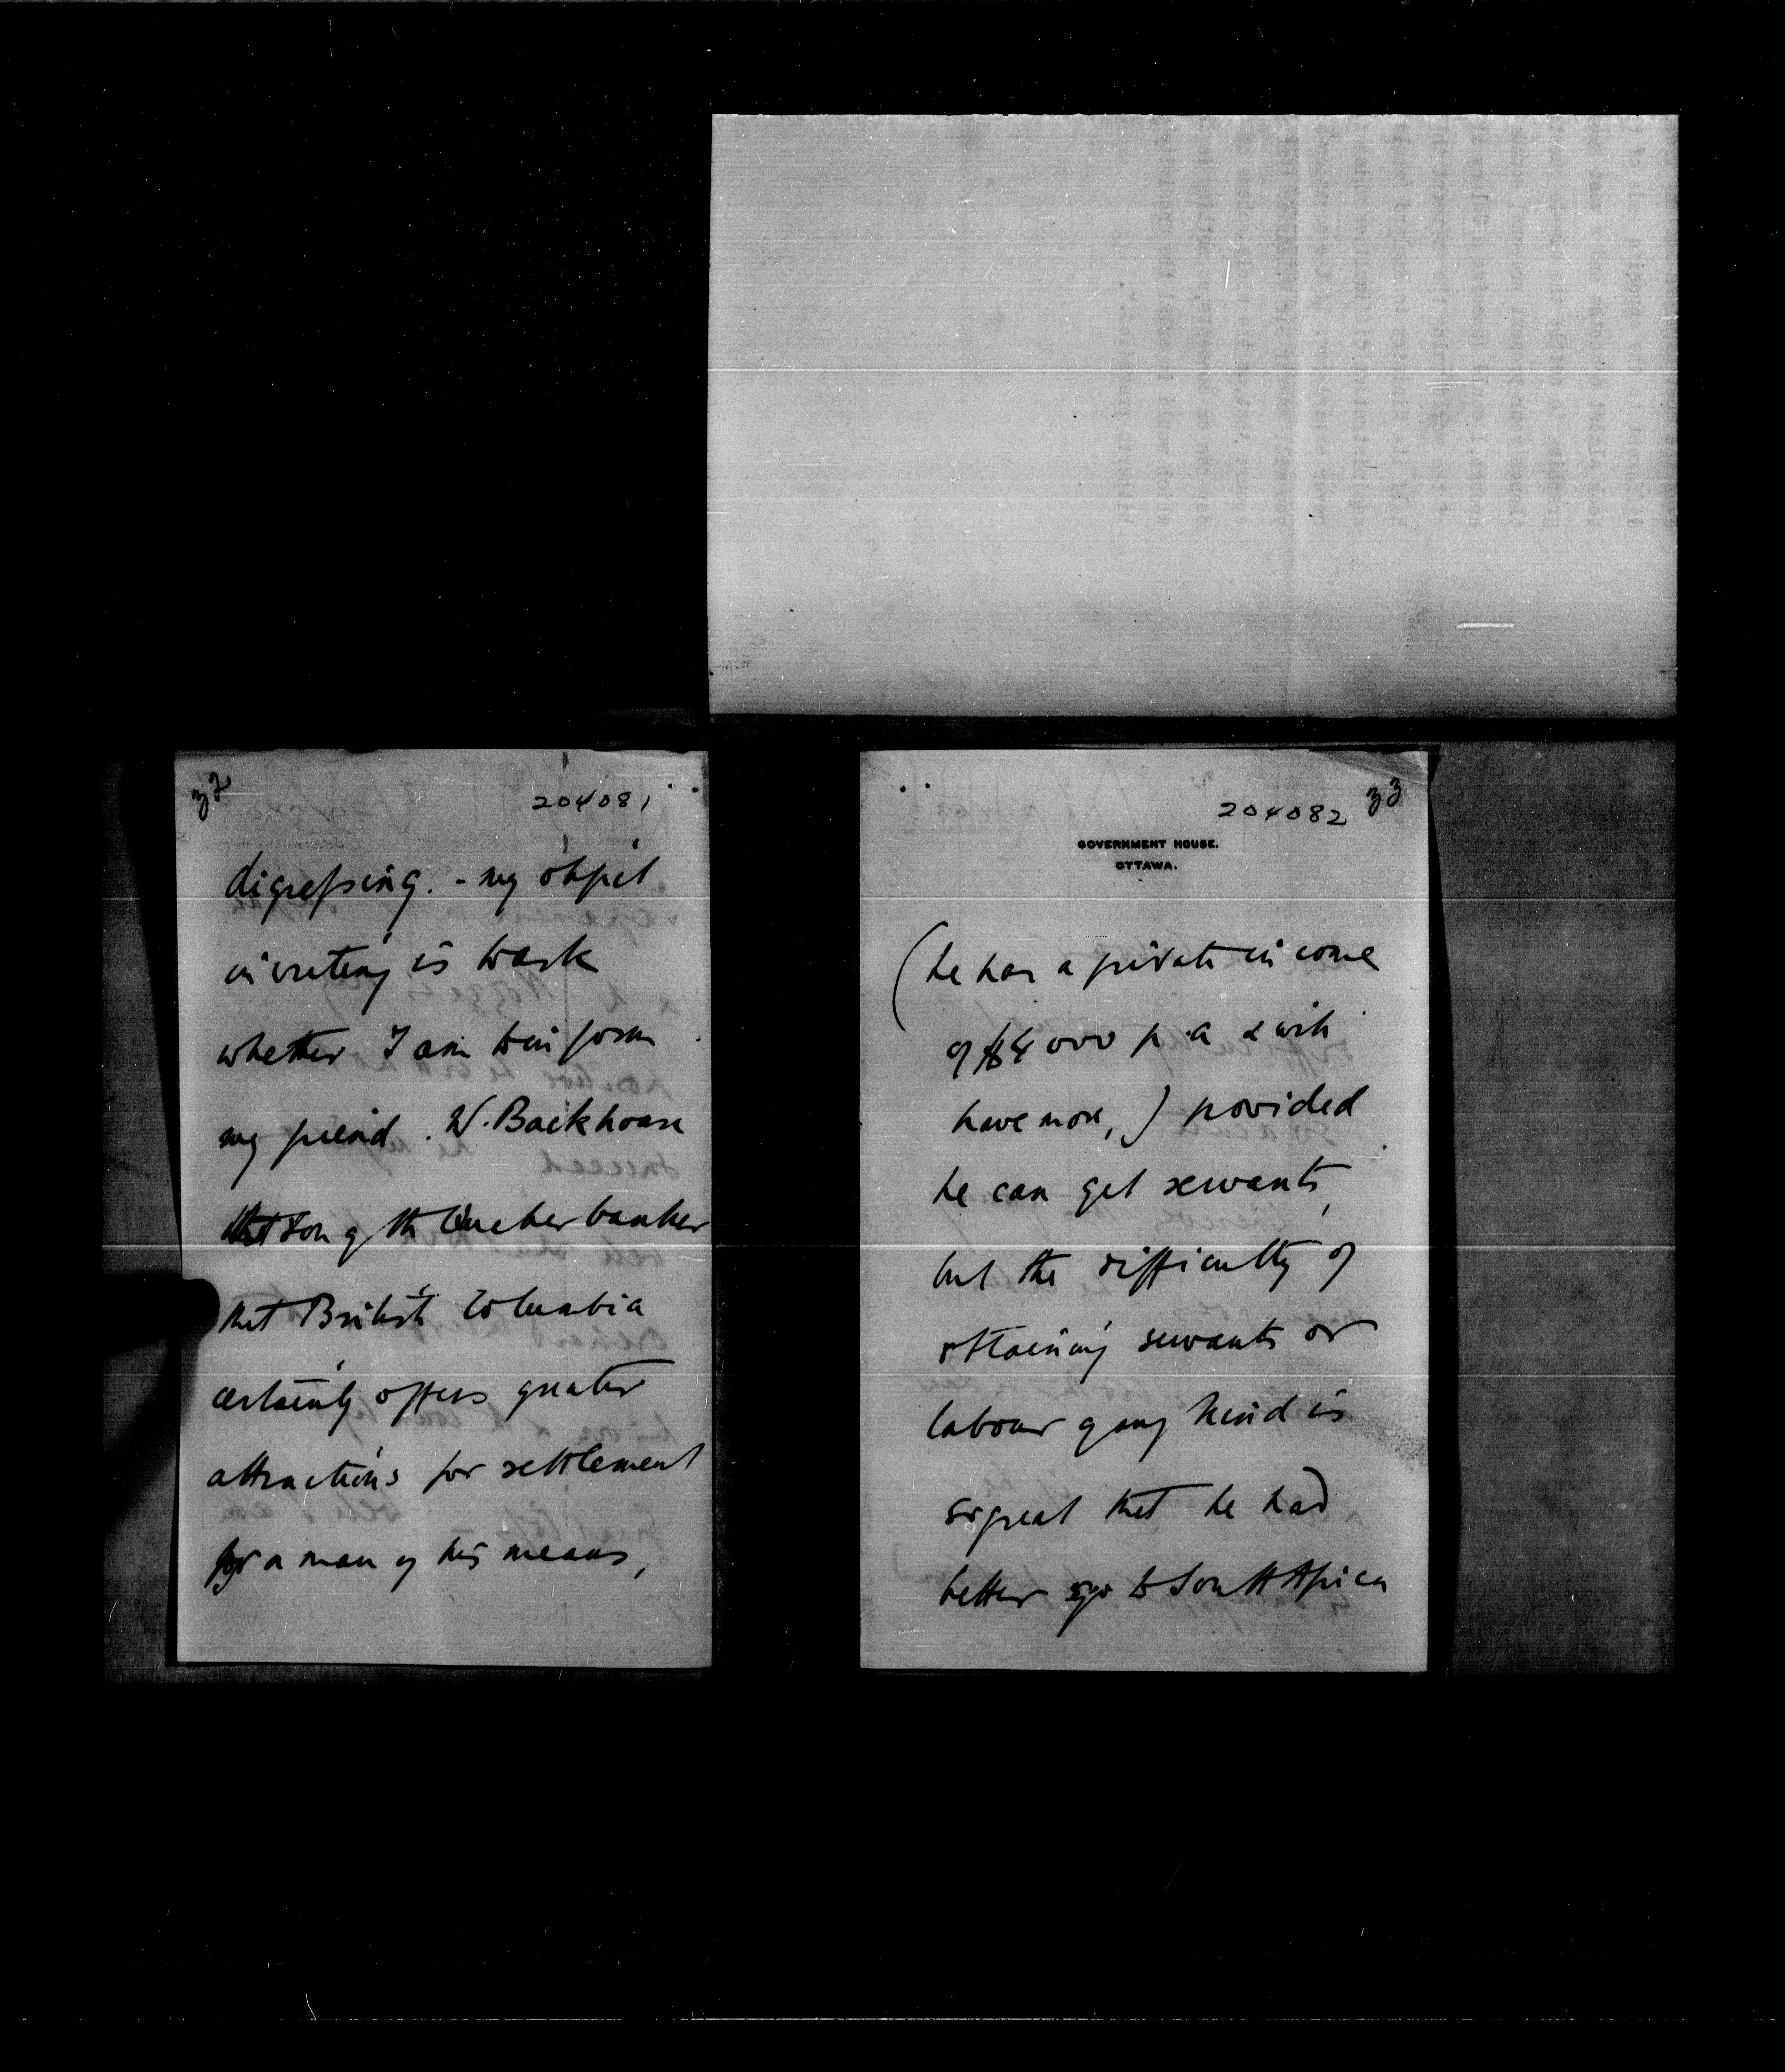 32
204081
digressing. - my object
in writing is to ask
whether I am to inform
my friend . W. Backhouse
son of the Quaker banker
that British Columbia
certainly offers greater
attractions for settlement
for a man of his means,
204082 33
GOVERNMENT HOUSE.
OTTAWA.
(he has a private income
of $4000 p. a & will
have more,) provided
he can get servants,
but the difficulty of
obtaining servants or
labour of any kind is
so great that he had
better go to South Africa